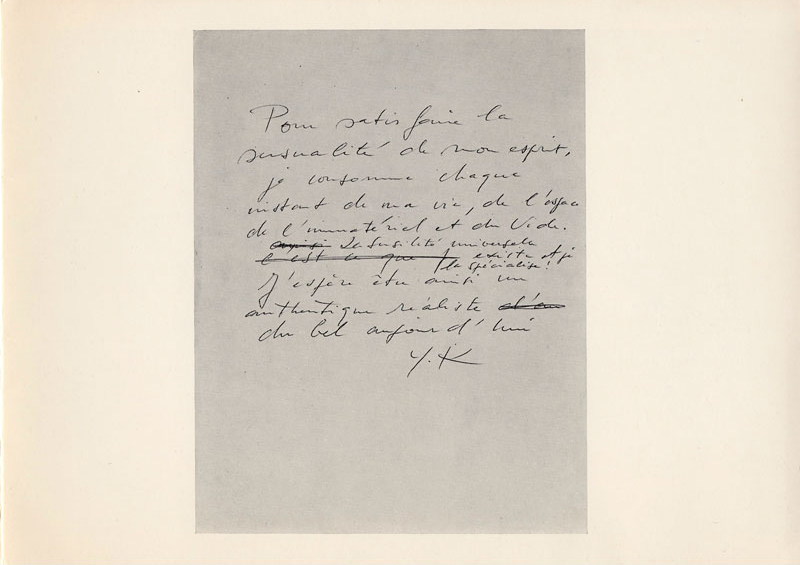 Pour satisfaire la
sensualité de mon esprit,
je consomme chaque
instant de ma vie, de l'espace
de l'immatériel et du Vide.
La sensibilité universelle
c'est ce que existe et je
la spécialise!
J'espère être ainsi un
authentique réaliste d'au
du bel aujourd'hui
Y.K